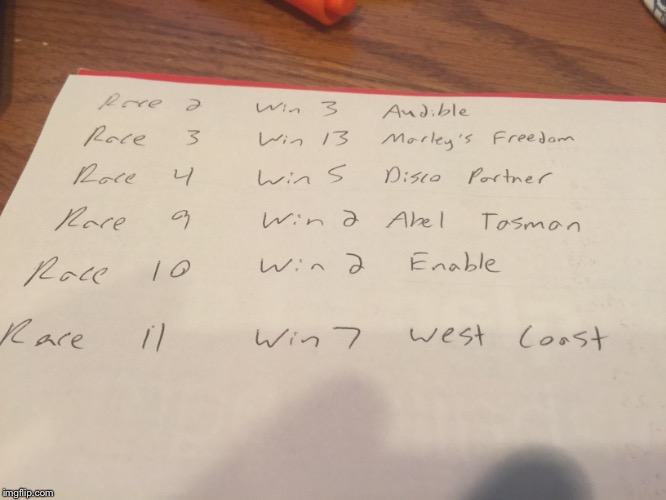 Race 2 Win 3 Audible
Race 3 Win 13 Marley's Freedom
Race 4 Win 5 Disco Partner
Race 9 Win 2 Abel Tasman
Race 10 Win 2 Enable
Race 11 Win 7 West Coast
imgflip.com